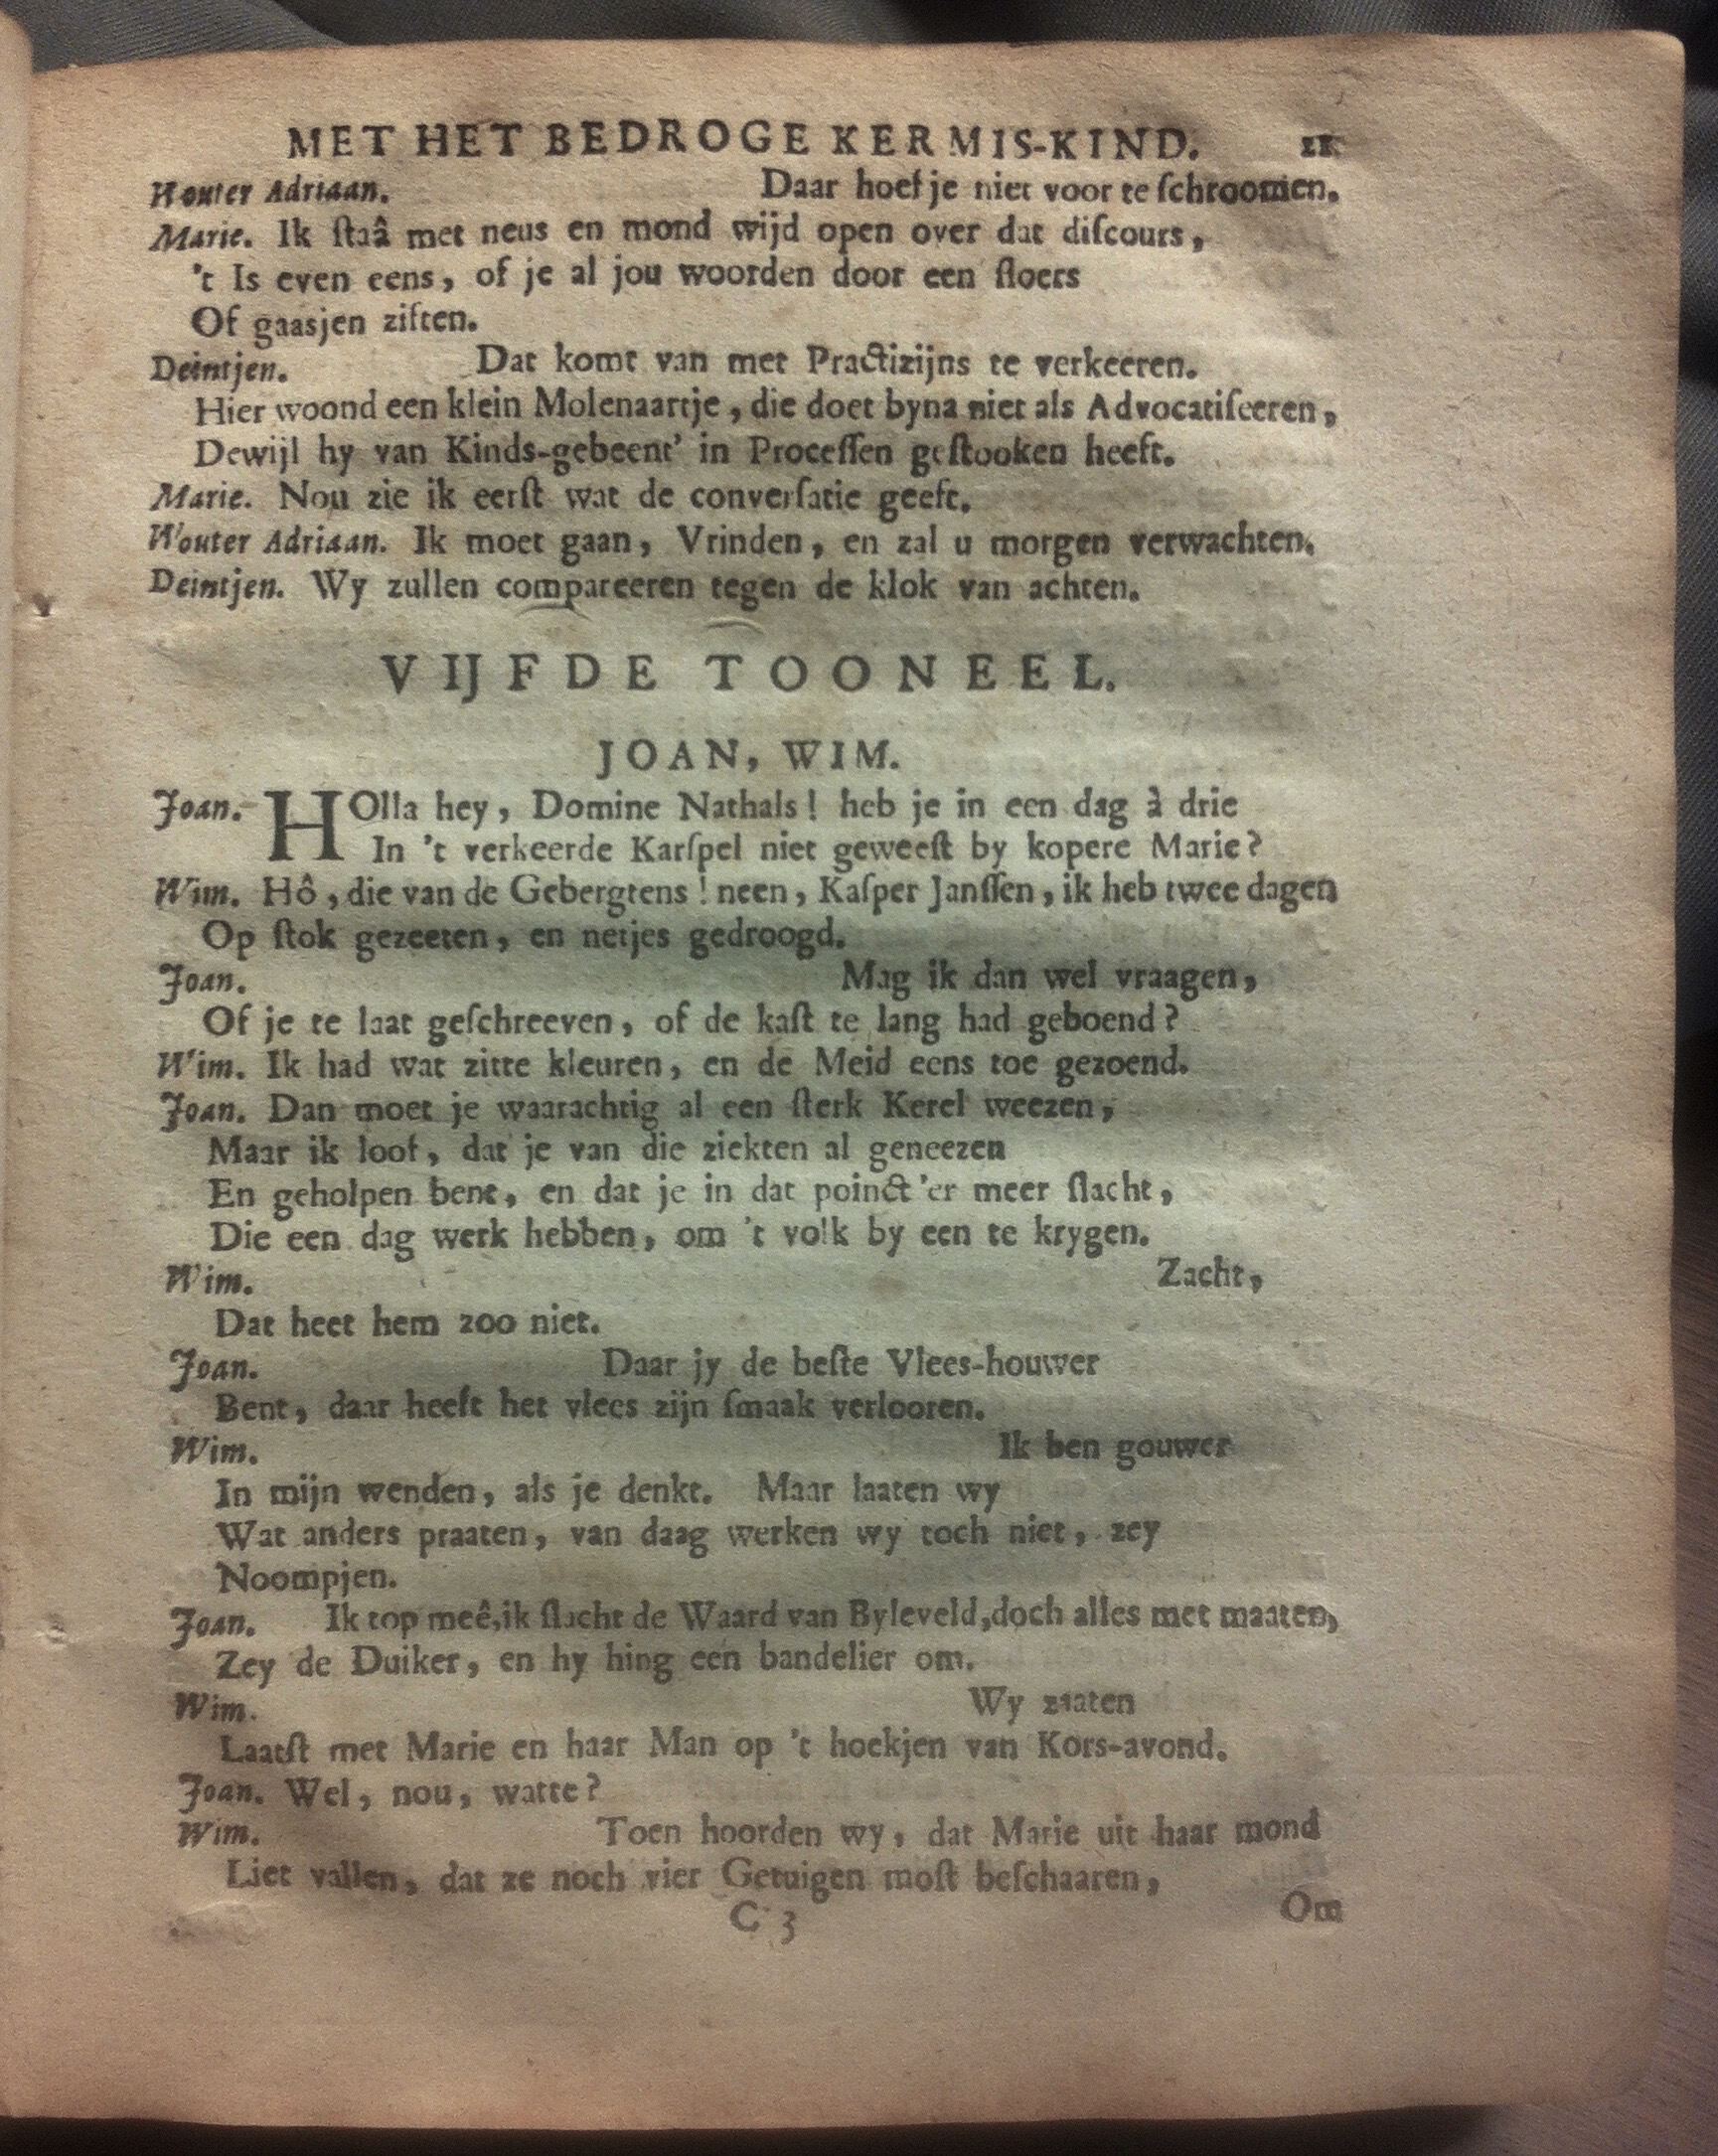 MET HET BEDROGE KERMIS-KIND. 21
Wouter Adriaan. Daar hoef je niet voor te ſchroomen.
Marie. Ik ſtaâ met neus en mond wijd open over dat diſcours,
't Is even eens, of je al jou woorden door een floers
Of gaasjen ziften.
Deintjen. Dat komt van met Practizijns te verkeeren.
Hier woond een klein Molenaartje, die doet byna niet als Advocatiſeeren,
Dewijl hy van Kinds-gebeent' in Proceſſen geſtooken heeft.
Marie. Nou zie ik eerſt wat de converſatie geeft.
Wouter Adriaan. Ik moet gaan, Vrinden, en zal u morgen verwachten.
Deintjen. Wy zullen compareeren tegen de klok van achten.
VIJFDE TOONEEL.
JOAN, WIM.
Joan. HOlla hey, Domine Nathals! heb je in een dag à drie
In 't verkeerde Karſpel niet geweeſt by kopere Marie?
Wim. Hô, die van de Gebergtens! neen, Kaſper Janſſen, ik heb twee dagen
Op ſtok gezeeten, en netjes gedroogd.
Joan. Mag ik dan wel vraagen,
Of je te laat geſchreeven, of de kaſt te lang had geboend?
Wim. Ik had wat zitte kleuren, en de Meid eens toe gezoend.
Joan. Dan moet je waarachtig al een ſterk Kerel weezen,
Maar ik loof, dat je van die ziekten al geneezen
En geholpen bent, en dat je in dat poinct 'er meer ſlacht,
Die een dag werk hebben, om 't volk by een te krygen.
Wim. Zacht,
Dat heet hem zoo niet.
Joan. Daar jy de beſte Vlees-houwer
Bent, daar heeft het vlees zijn ſmaak verlooren.
Wim. Ik ben gouwer
In mijn wenden, als je denkt. Maar laaten wy
Wat anders praaten, van daag werken wy toch niet, zey
Noompjen.
Joan. Ik top meê, ik ſlacht de Waard van Byleveld, doch alles met maaten,
Zey de Duiker, en hy hing een bandelier om.
Wim. Wy zaaten
Laatſt met Marie en haar Man op 't hoekjen van Kors-avond.
Joan. Wel, nou, watte?
Wim. Toen hoorden wy, dat Marie uit haar mond
Liet vallen, dat ze noch vier Getuigen moſt beſchaaren,
C 3 Om